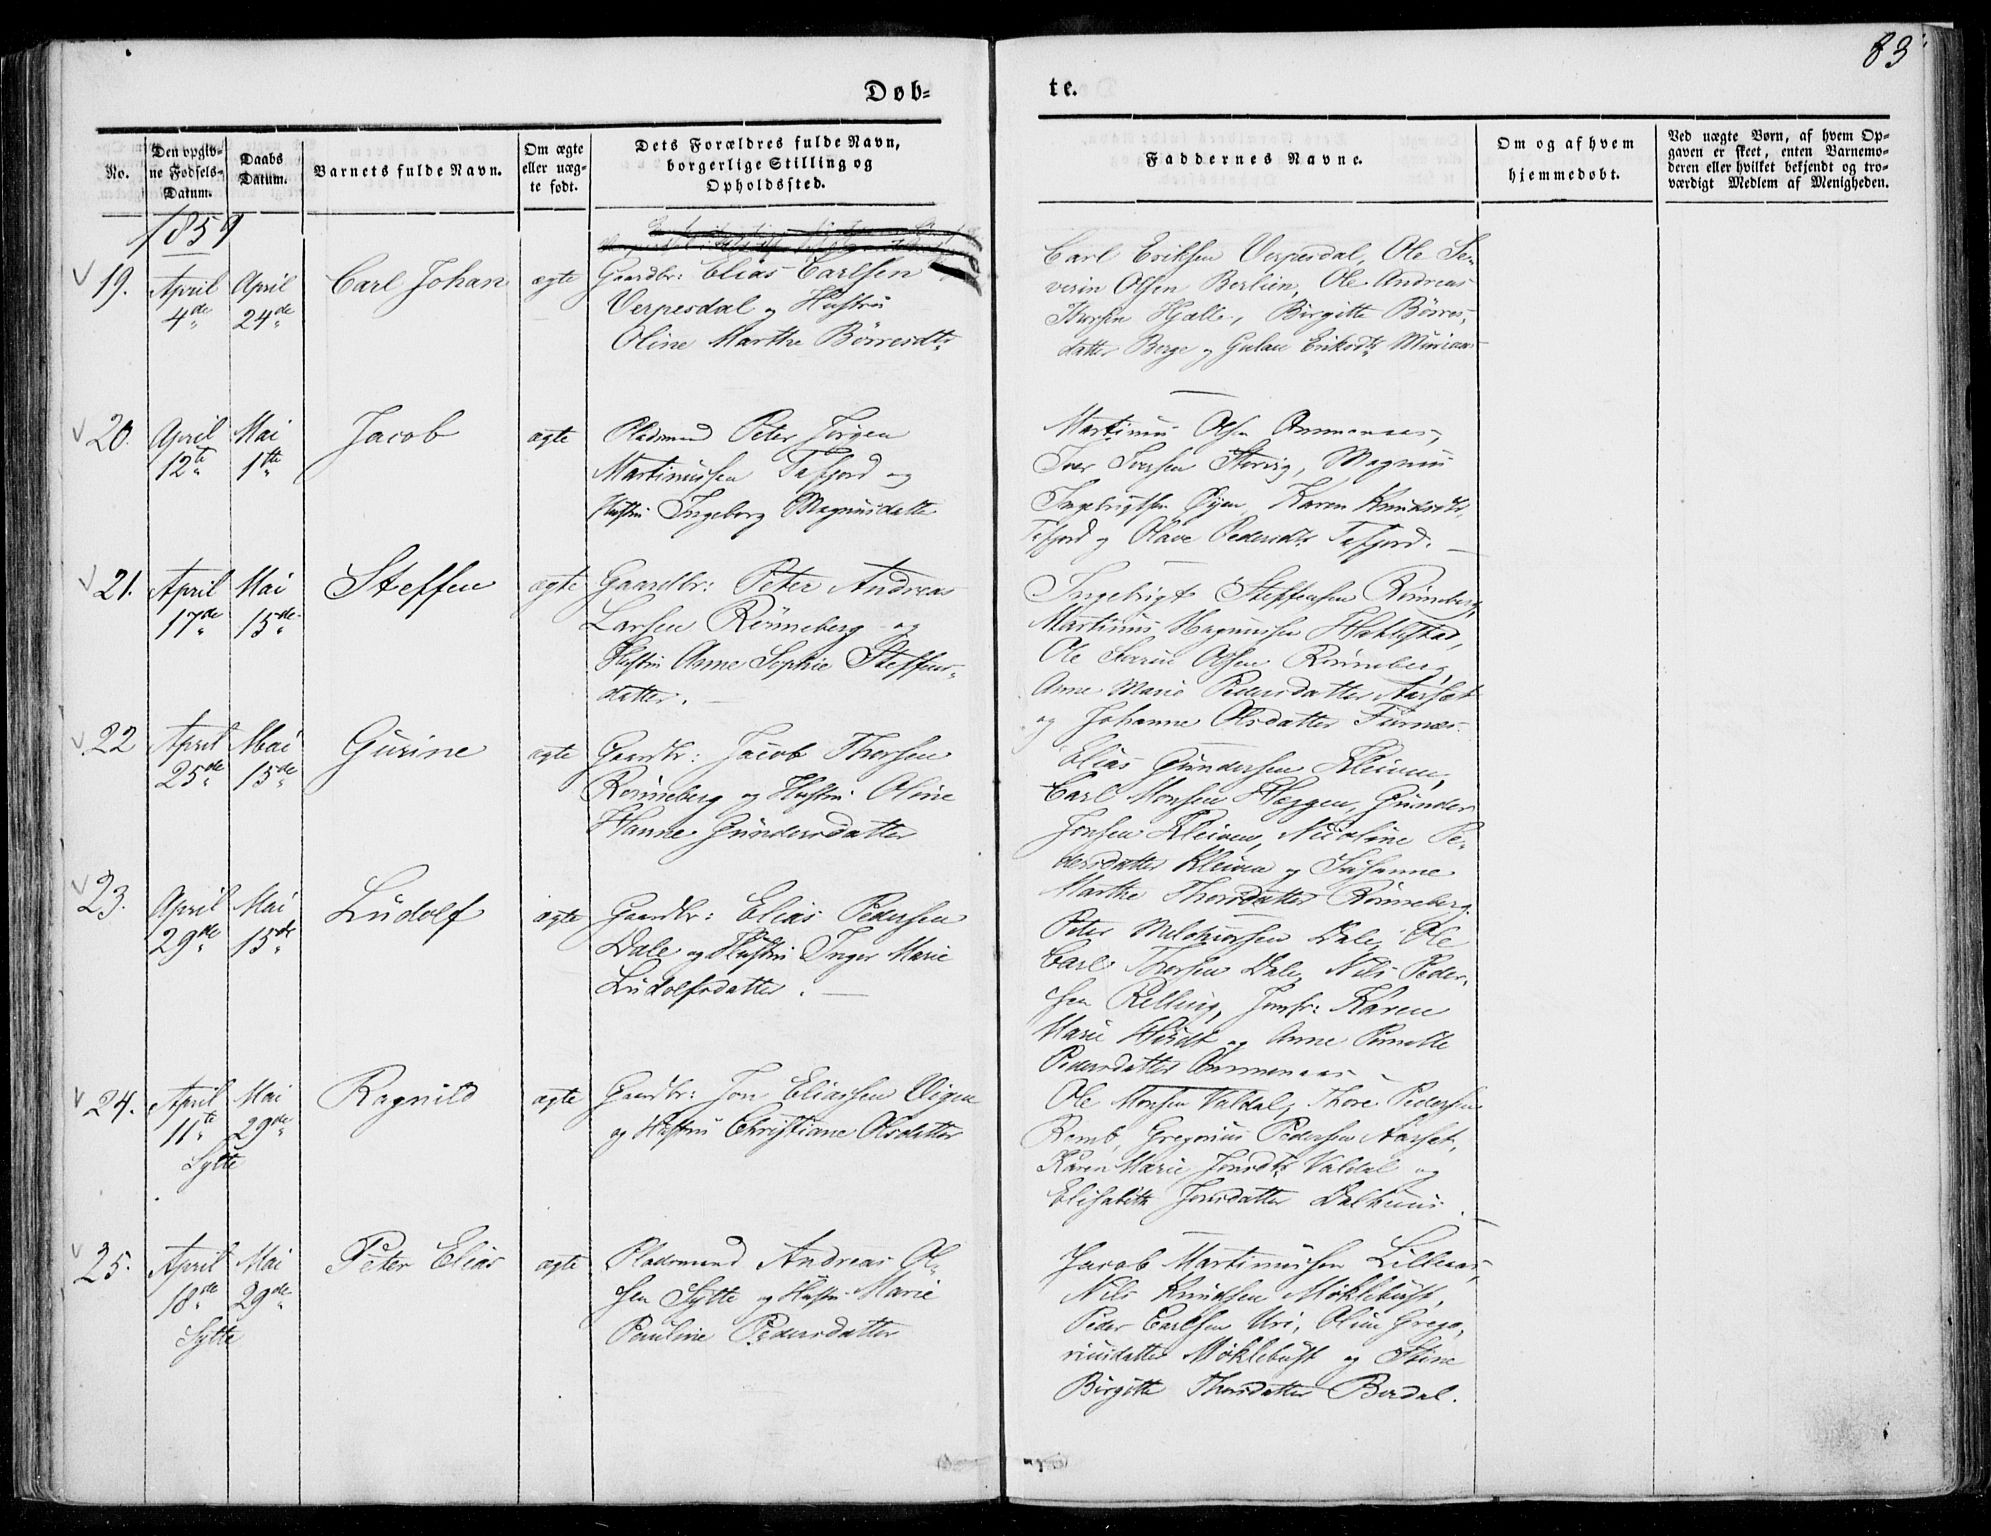 83
Døb-
te.
No.
Den opgiv-
ne Fødsels-
Datum.
Daabs
Datum.
Barnets fulde Navn.
Om ægte
eller uæg-
te født.
Dets Forældres fulde Navn,
borgerlige Stilling og
Opholdssted.
Faddernes Navne.
Om og af hvem
hjemmedøbt.
Ved uægte Børn, af hvem Op-
gaven er skeet, enten Barnemo-
deren eller hvilket bekjendt og tro-
værdigt Medlem af Menigheden.
1859
19.
April
4de
April
24de
Carl Johan
ægte
Gaardbr: Elias Carlsen
Verpesdal og Hustru
Oline Marthe Børresdtr
Carl Eriksen Verpesdal, Ole Se-
verin Olsen Berlien, Ole Andreas
Hjelle, Birgitte Børres-
datter Berge og Eriksdtr
20.
April
12te
Mai
1ste
Jacob
ægte
Pladsmand Peter Jørgen
Martinussen Tafjord og
Hustru Ingeborg Magnusdatte
Martinus Olsen Onmenaas,
Iver Iversen Storvig, Magnus
Ingebrigtsen Øyen, Karen Knudsdtr
Tafjord og Olave Pedersdtr Tafjord.
21.
April
17de
Mai
15de
Steffen
ægte
Gaardbr: Peter Andreas
Larsen Rønneberg og
Hustru Anne Sophie Steffens-
datter.
Ingebrigt Steffensen Rønneberg,
Martinus Magnussen
Ole Olsen Rønneberg,
Anne Marie Pedersdatter Aarset
og Johanne Olsdatter Furnæs.
22
April
25de
Mai
15de
Gurine
ægte
Gaardbr: Jacob Thorsen
Rønneberg og Hustru Oline
Hanne Gundersdatter
Elias Gundersen Kleiven,
Carl Monsen Hæggen, Gunder
Jonsen Kleiven, Nicoline Pe-
dersdatter Kleiven og Susanne
Marthe Thorsdatter Rønneberg.
23.
April
29de
Mai
15de
Ludolf
ægte
Gaardbr: Elias Pedersen
Dale og Hustru Inger Marie
Ludolfsdatter.
Peter Melchiorsen Dale, Ole
Carl Thorsen Dale, Nils Peder-
sen Relling, Jomfr: Karen
Marie og Anne Pernille
Pedersdatter Onmenaas
24.
April
11te
Sylte
Mai
29de
Ragnild
ægte
Gaardbr: Jon Eliassen Uigen
og Hustru Christiane Olsdatter
Ole Monsen Valdal, Thore Pedersen
Remb, Gregorius Pedersen Aarset,
Karen Marie Jonsdtr Valdal og
Elisabeth Jonsdatter Dalhuus.
25.
April
18de
Sylte
Mai
29de
Peter Elias
ægte
Pladsmand Andreas Ol-
sen Sylte og Hustru Marie
Pauline Pedersdatter
Jacob Martinussen Lilleaas,
Nils Knudsen Møklebust,
Peder Carlsen Uri, Oline Grego-
riusdatter Møklebust og Stine
Birgitte Thorsdatter Berdal.